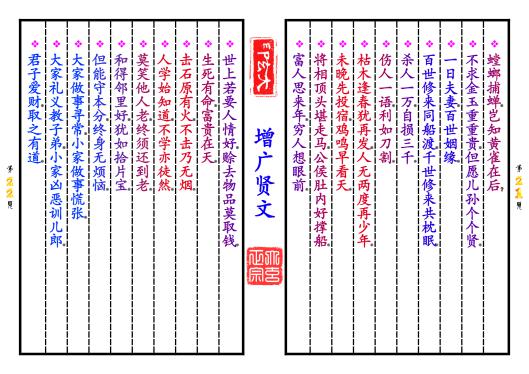 螳螂捕蝉岂知黄雀在后。
不求金玉重重贵但愿儿孙个个贤。
一日夫妻百世姻缘。
百世修来同船渡千世修来共枕眠。
杀人一万自损三千。
伤人一语利如刀割。
枯木逢春犹再发人无两度再少年。
未晚先投宿鸡鸣早看天。
将相顶头堪走马公侯肚内好撑船。
富人思来年穷人想眼前。
增广贤文
世上若要人情好赊去物品莫取钱。
生死有命富贵在天。
击石原有火不击乃无烟。
人学始知道不学亦徒然。
莫笑他人老终须还到老。
和得邻里好犹如拾片宝。
但能守本分终身无烦恼。
大家做事寻常小家做事慌张。
大家礼义教子弟小家凶恶训儿郎。
君子爱财取之有道。